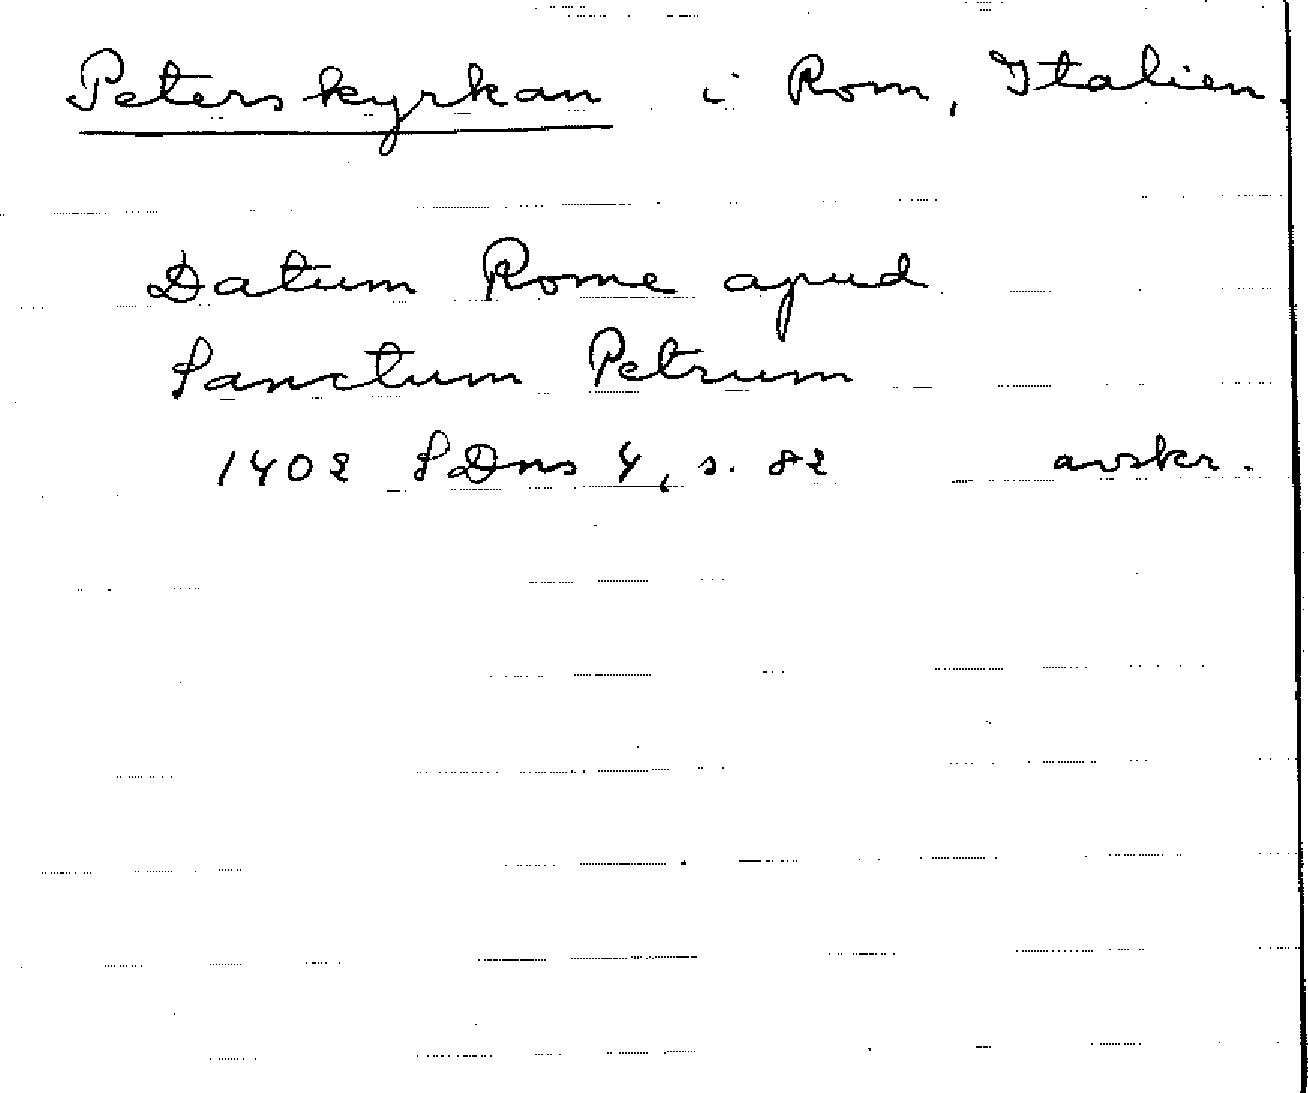 Peterskyrkan i Rom, Italien.
Datum Rome apud
Sanctum Petrum
1402 SDns 4, s. 82 avskr.